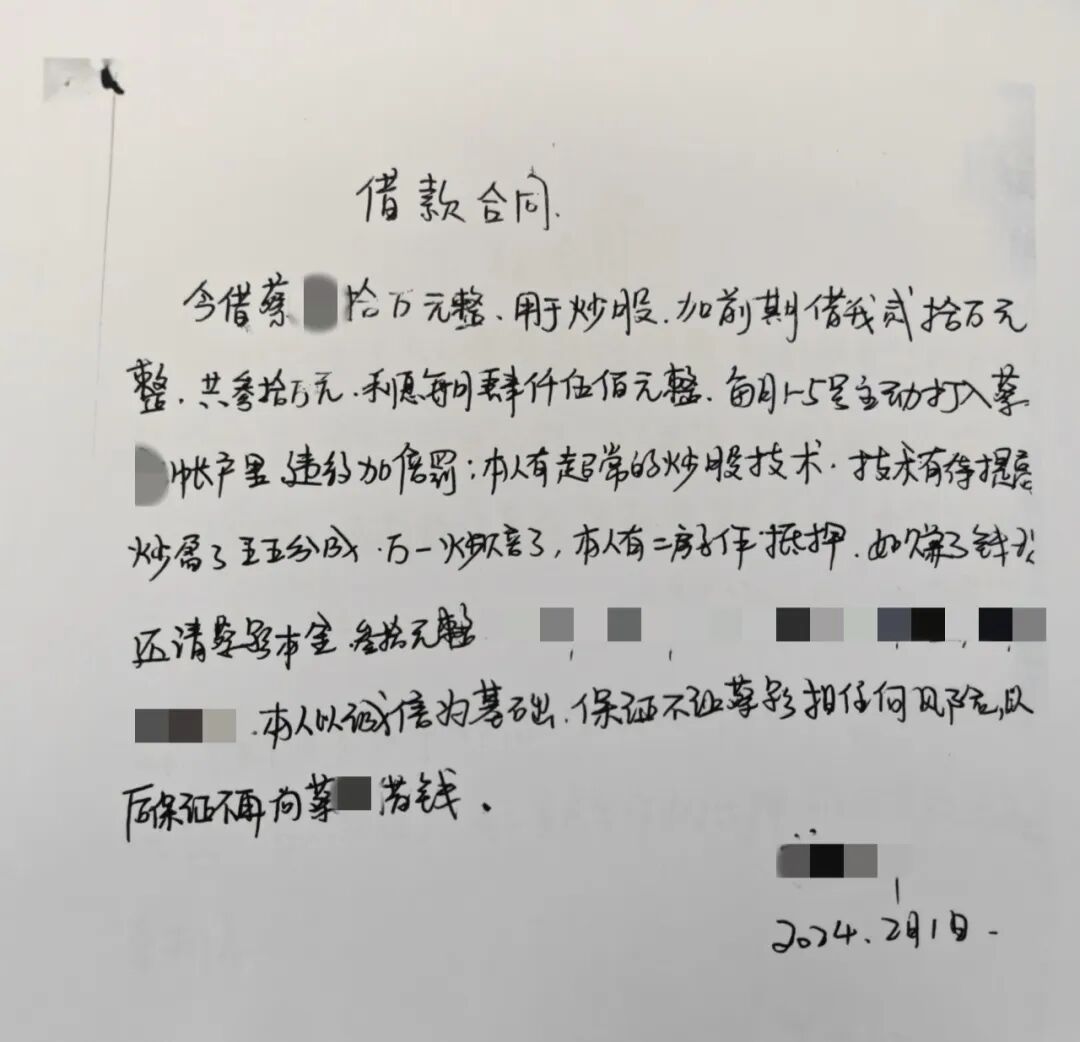 借款合同.
今借蔡 拾万元整、用于炒股.加前期借我贰拾万元
整.共叁拾万元.利息每月肆仟伍佰元整.每月1-5号主动打入蔡
帐户里.违约加倍罚;本人有超常的炒股技术.技术有待提高
炒 了五五分成.万一炒赔了,本人有二房子作抵押.如赚了钱
还请蔡 本金.叁拾元整
.本人以诚信为基础.保证不让蔡 担任何风险,以
后保证不再向蔡 借钱.
2024.2月1日.